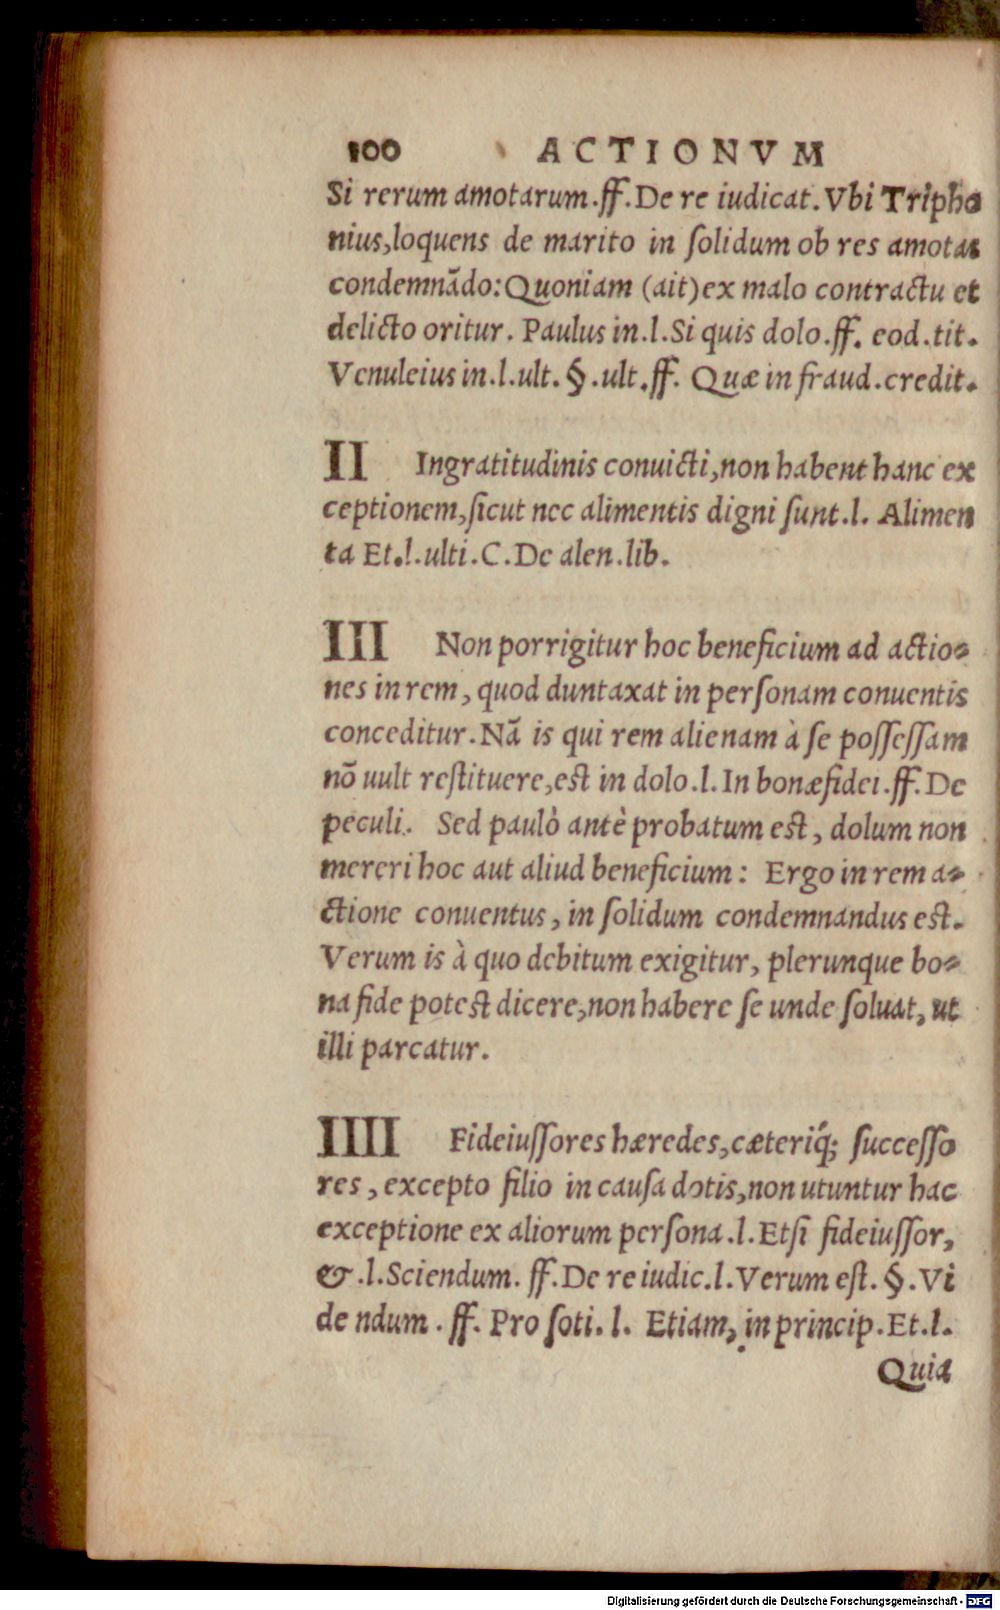 100 ACTIONVM
Si rerum amotarum.ff.De re iudicat.Vbi Tripho
nius,loquens de marito in ſolidum ob res amotas
condemnãdo:Quoniam (ait)ex malo contractu et
delicto oritur. Paulus in.l.Si quis dolo.ff. eod.tit.
Venuleius in.l.ult.§.ult.ff. Quæ in fraud.credit.
II Ingratitudinis conuicti,non habent hanc ex
ceptionem,ſicut nec alimentis digni ſunt.l. Alimen
ta Et.l.ulti.C.De alen.lib.
III Non porrigitur hoc beneficium ad actio-
nes in rem, quod duntaxat in perſonam conuentis
conceditur.Nã is qui rem alienam à ſe poſſeſſam
nõ uult reſtituere,eſt in dolo.l.In bonæfidei.ff.De
peculi. Sed paulò antè probatum eſt, dolum non
mereri hoc aut aliud beneficium: Ergo in rem a-
ctione conuentus, in ſolidum condemnandus eſt.
Verum is à quo debitum exigitur, plerunque bo-
na fide poteſt dicere,non habere ſe unde ſoluat, ut
illi parcatur.
IIII Fideiuſſores hæredes,cæteriq́; ſucceſſo
res, excepto filio in cauſa dotis,non utuntur hac
exceptione ex aliorum perſona.l.Etſi fideiuſſor,
&.l.Sciendum. ff.De re iudic.l.Verum eſt.§.Vi
de ndum. ff. Pro ſoti. l. Etiam, in princip.Et.l.
Quia
Digitalisierung gefördert durch die Deutsche Forschungsgemeinschaft - DFG